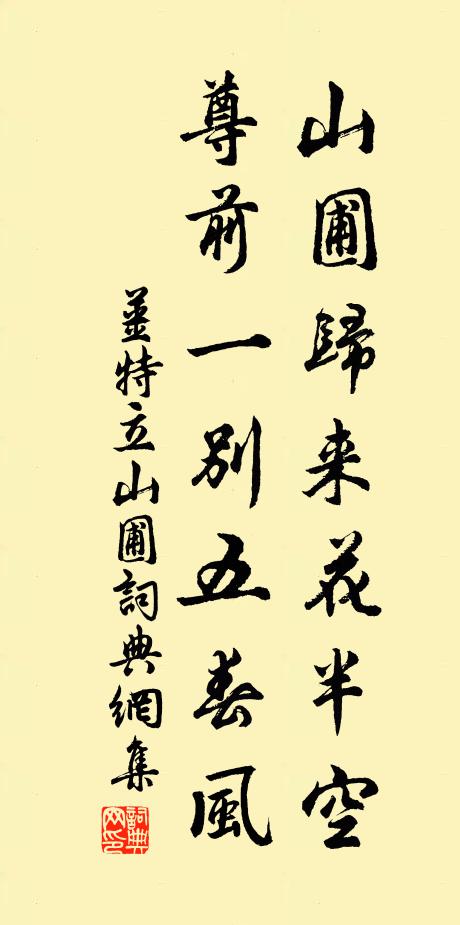 山圃歸来花半空
尊前一别五春風
姜特立山圃詞典網集
詞典网印